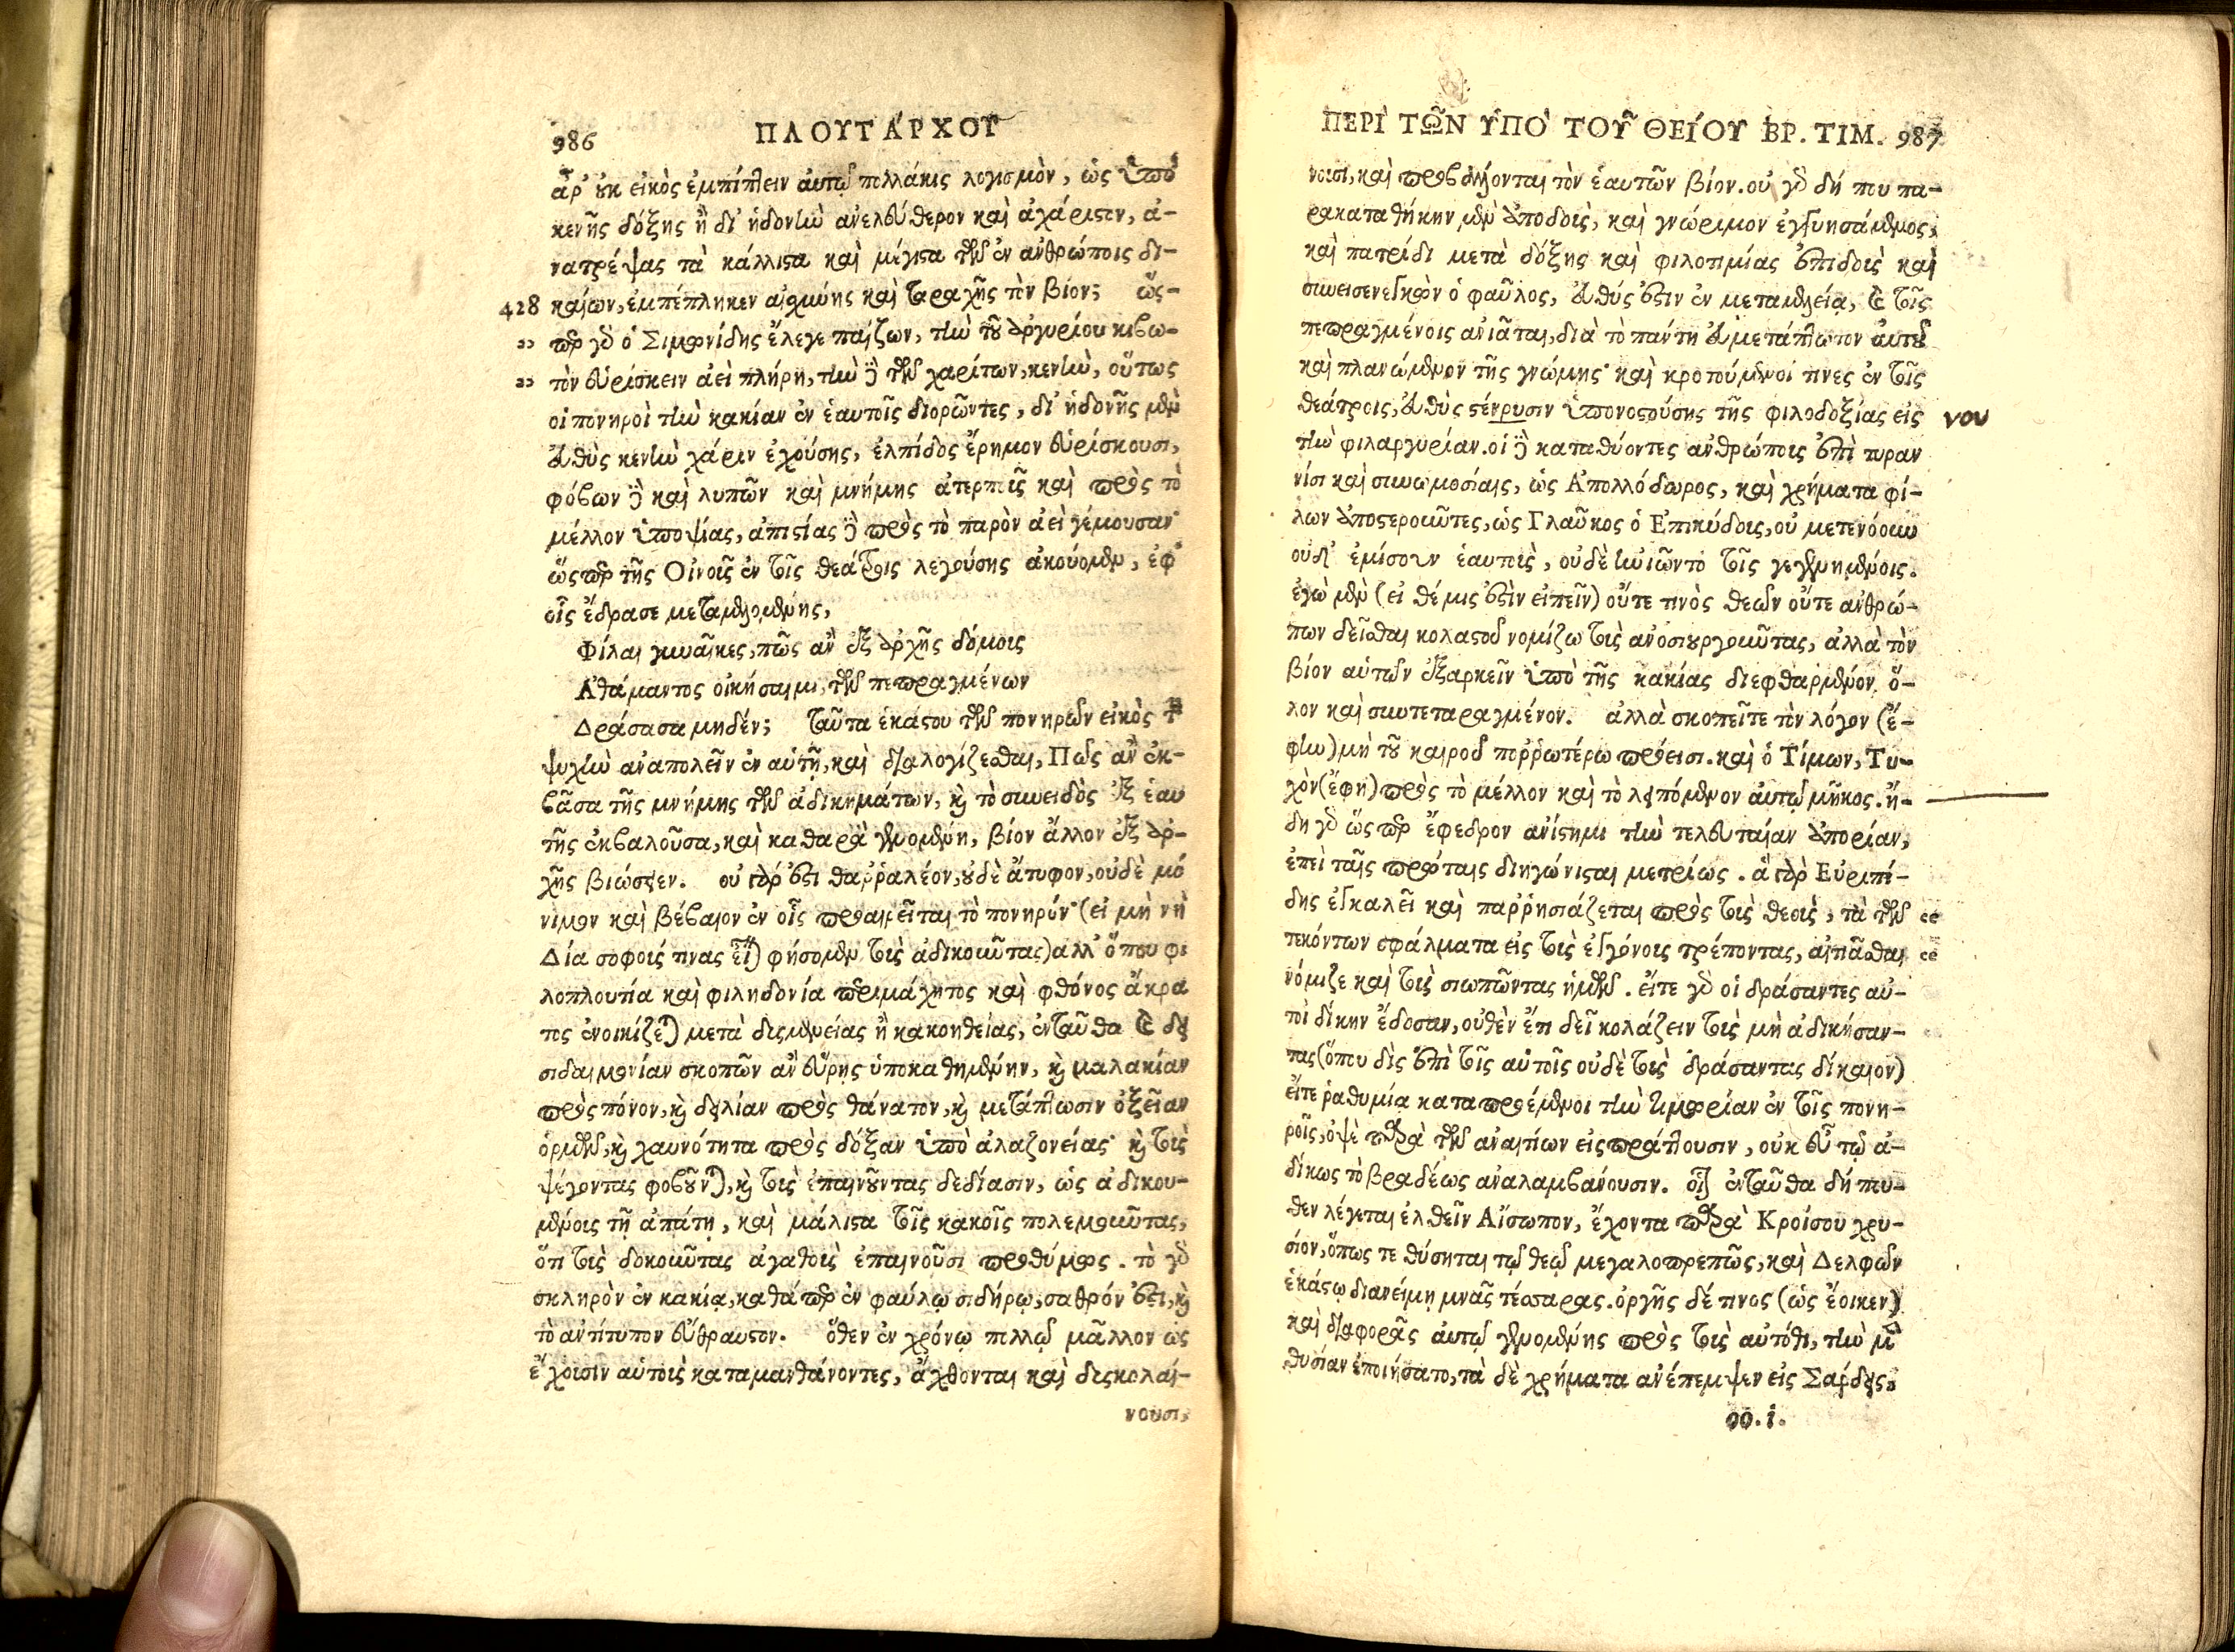 986 ΠΛΟΥΤΑΡΧΟΥ
ἆρ' οὐκ εἰκὸς ἐμπίπτειν αὐτῷ πολλάκις λογισμὸν, ὡς ὑπὸ
κενῆς δόξης ἢ δι' ἡδονὴν ἀνελεύθερον καὶ ἀχάριστον, ἀ-
νατρέψας τὰ κάλλιστα καὶ μέγιστα τῶν ἐν ἀνθρώποις δι-
428 καίων, ἐμπέπληκεν αἰσχύνης καὶ ταραχῆς τὸν βίον; ὥς-
„ περ γὰρ ὁ Σιμωνίδης ἔλεγε παίζων, τὴν τοῦ ἀργυρίου κιβω-
„ τὸν εὑρίσκειν ἀεὶ πλήρη, τὴν δὲ τῶν χαρίτων, κενὴν, οὕτως
οἱ πονηροὶ τὴν κακίαν ἐν ἑαυτοῖς διορῶντες, δι' ἡδονῆς μὲν
εὐθὺς κενὴν χάριν ἐχούσης, ἐλπίδος ἔρημον εὑρίσκουσι,
φόβων δὲ καὶ λυπῶν καὶ μνήμης ἀτερποῦς καὶ πρὸς τὸ
μέλλον ὑποψίας, ἀπιστίας δὲ πρὸς τὸ παρὸν ἀεὶ γέμουσαν·
ὥςπερ τῆς Οἰνοῦς ἐν τοῖς θεάτροις λεγούσης ἀκούομεν, ἐφ'
οἷς ἔδρασε μεταμελομένης,
Φίλαι γυναῖκες, πῶς ἂν ἐξ ἀρχῆς δόμοις
Ἀθάμαντος οἰκήσαιμι, τῶν πεπραγμένων
Δράσασα μηδέν; ταῦτα ἑκάστου τῶν πονηρῶν εἰκὸς τὴν
ψυχὴν ἀναπολεῖν ἐν αὑτῇ, καὶ διαλογίζεσθαι, Πῶς ἂν ἐκ-
βᾶσα τῆς μνήμης τῶν ἀδικημάτων, καὶ τὸ συνειδὸς ἐξ ἑαυ
τῆς ἐκβαλοῦσα, καὶ καθαρὰ γενομένη, βίον ἄλλον ἐξ ἀρ-
χῆς βιώσειεν. οὐ γάρ ἐστι θαῤῥαλέον, οὐδὲ ἄτυφον, οὐδὲ μό
νιμον καὶ βέβαιον ἐν οἷς προαιρεῖται τὸ πονηρόν· (εἰ μὴ νὴ
Δία σοφούς τινας εἶναι φήσομεν τοὺς ἀδικοῦντας) ἀλλ' ὅπου φι
λοπλουτία καὶ φιληδονία περιμάχητος καὶ φθόνος ἄκρα
τος ἐνοικίζεται μετὰ δυσμενείας ἢ κακοηθείας, ἐνταῦθα καὶ δει
σιδαιμονίαν σκοπῶν ἂν εὕρῃς ὑποκαθημένην, καὶ μαλακίαν
πρὸς πόνον, καὶ δειλίαν πρὸς θάνατον, καὶ μετάπτωσιν ὀξεῖαν
ὁρμῶν, καὶ χαυνότητα πρὸς δόξαν ὑπὸ ἀλαζονείας· καὶ τοὺς
ψέγοντας φοβοῦνται, καὶ τοὺς ἐπαινοῦντας δεδίασιν, ὡς ἀδικου-
μένους τῇ ἀπάτῃ, καὶ μάλιστα τοῖς κακοῖς πολεμοῦντας,
ὅτι τοὺς δοκοῦντας ἀγαθοὺς ἐπαινοῦσι προθύμως. τὸ γὰρ
σκληρὸν ἐν κακίᾳ, καθάπερ ἐν φαύλῳ σιδήρῳ, σαθρόν ἐστι, καὶ
τὸ ἀντίτυπον εὔθραυστον. ὅθεν ἐν χρόνῳ πολλῷ μᾶλλον ὡς
ἔχουσιν αὑτοὺς καταμανθάνοντες, ἄχθονται καὶ δυσκολαί-
νουσι,
ΠΕΡῚ ΤΩ͂Ν ΥΠῸ ΤΟΥ͂ ΘΕΊΟΥ ΒΡ. ΤΙΜ. 987
νουσι, καὶ προβάλλονται τὸν ἑαυτῶν βίον. οὐ γὰρ δή που πα-
ρακαταθήκην μὲν ἀποδοὺς, καὶ γνώριμον ἐγγυησάμενος,
καὶ πατρίδι μετὰ δόξης καὶ φιλοτιμίας ἐπιδοὺς καὶ
συνεισενεγκὼν ὁ φαῦλος, εὐθύς ἐστιν ἐν μεταμελείᾳ, καὶ τοῖς
πεπραγμένοις ἀνιᾶται, διὰ τὸ πάντη εὐμετάπτωτον αὐτοῦ
καὶ πλανώμενον τῆς γνώμης· καὶ κροτούμενοί τινες ἐν τοῖς
θεάτροις, εὐθὺς στένουσιν ὑπονοστούσης τῆς φιλοδοξίας εἰς νου
τὴν φιλαργυρίαν. οἱ δὲ καταθύοντες ἀνθρώπους ἐπὶ τυραν
νίσι καὶ συνωμοσίαις, ὡς Ἀπολλόδωρος, καὶ χρήματα φί-
λων ἀποστεροῦντες, ὡς Γλαῦκος ὁ Ἐπικύδους, οὐ μετενόουν
οὐδ' ἐμίσουν ἑαυτοὺς, οὐδὲ ἠνιῶντο τοῖς γεγενημένοις.
ἐγὼ μὲν (εἰ θέμις ἐστὶν εἰπεῖν) οὔτε τινὸς θεῶν οὔτε ἀνθρώ-
πων δεῖσθαι κολαστοῦ νομίζω τοὺς ἀνοσιουργοῦντας, ἀλλὰ τὸν
βίον αὐτῶν ἐξαρκεῖν ὑπὸ τῆς κακίας διεφθαρμένον ὅ-
λον καὶ συντεταραγμένον. ἀλλὰ σκοπεῖτε τὸν λόγον (ἔ-
φην) μὴ τοῦ καιροῦ ποῤῥωτέρω πρόεισι. καὶ ὁ Τίμων, Τυ-
χὸν (ἔφη) πρὸς τὸ μέλλον καὶ τὸ λειπόμενον αὐτῷ μῆκος. ἤ-
δη γὰρ ὥςπερ ἔφεδρον ἀνίστημι τὴν τελευταίαν ἀπορίαν,
ἐπεὶ ταῖς πρώταις διηγώνισται μετρίως. ἃ γὰρ Εὐριπί-
δης ἐγκαλεῖ καὶ παῤῥησιάζεται πρὸς τοὺς θεοὺς, τὰ τῶν “
τεκόντων σφάλματα εἰς τοὺς ἐγγόνους τρέποντας, αἰτιᾶσθαι “
νόμιζε καὶ τοὺς σιωπῶντας ἡμῶν. εἴτε γὰρ οἱ δράσαντες αὐ-
τοὶ δίκην ἔδοσαν, οὐθὲν ἔτι δεῖ κολάζειν τοὺς μὴ ἀδικήσαν-
τας (ὅπου δὶς ἐπὶ τοῖς αὐτοῖς οὐδὲ τοὺς δράσαντας δίκαιον)
εἴτε ῥαθυμίᾳ καταπροέμενοι τὴν τιμωρίαν ἐν τοῖς πονη-
ροῖς, ὀψὲ παρὰ τῶν ἀναιτίων εἰσπράττουσιν, οὐκ εὖ τῷ ἀ-
δίκως τὸ βραδέως ἀναλαμβάνουσιν. οἷον ἐνταῦθα δήπου-
θεν λέγεται ἐλθεῖν Αἴσωπον, ἔχοντα παρὰ Κροίσου χρυ-
σίον, ὅπως τε θύσηται τῷ θεῷ μεγαλοπρεπῶς, καὶ Δελφῶν
ἑκάστῳ διανείμῃ μνᾶς τέσσαρας. ὀργῆς δέ τινος (ὡς ἔοικεν)
καὶ διαφορᾶς αὐτῷ γενομένης πρὸς τοὺς αὐτόθι, τὴν μὲν
θυσίαν ἐποιήσατο, τὰ δὲ χρήματα ἀνέπεμψεν εἰς Σάρδεις,
οο.i.